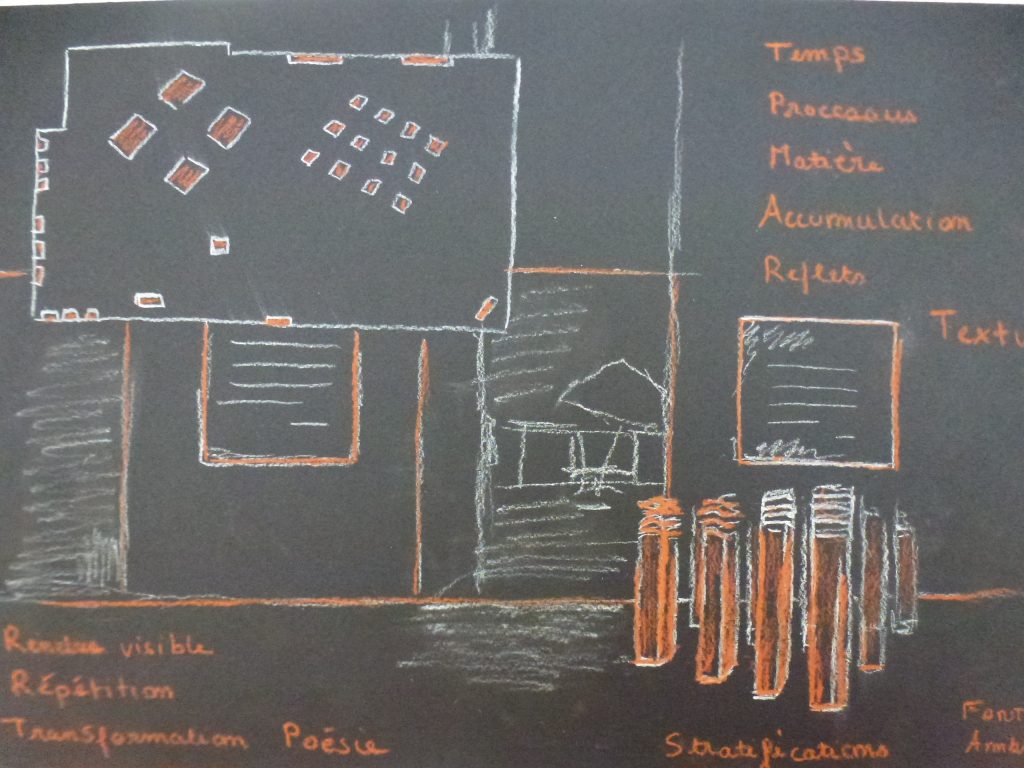 Temps
Processus
Matière
Accumulation
Reflets
Textu
Rendre visible
Répétition
Transformation Poésie
Stratifications